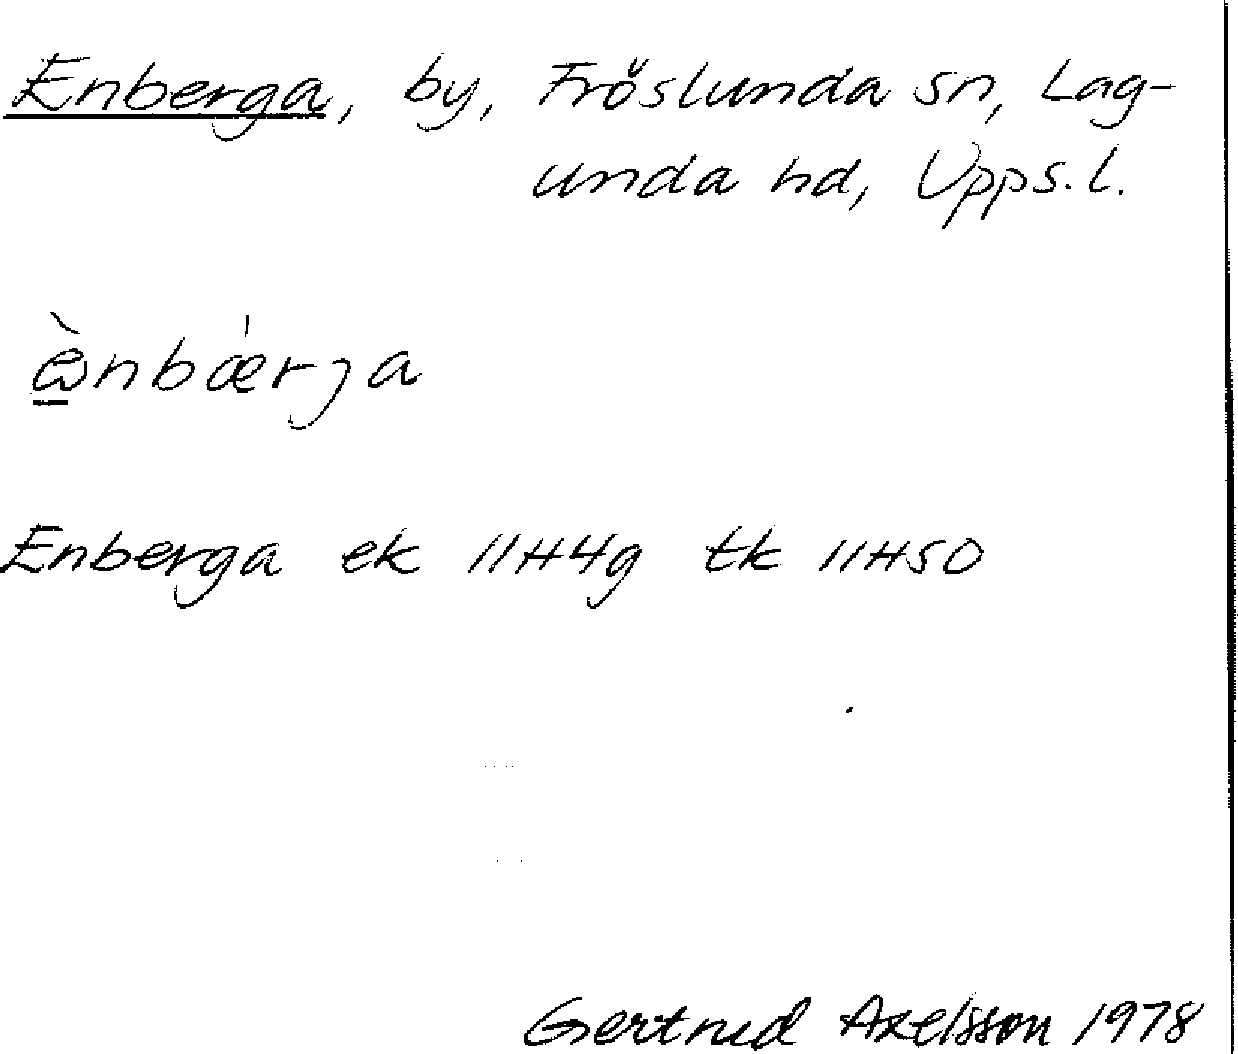 Enberga, by, Fröslunda sn, Lag-
unda hd, Upps. l.
è̱nbǽrja
Enberga ek 11H4g tk 11H50
Gertrud Axelsson 1978